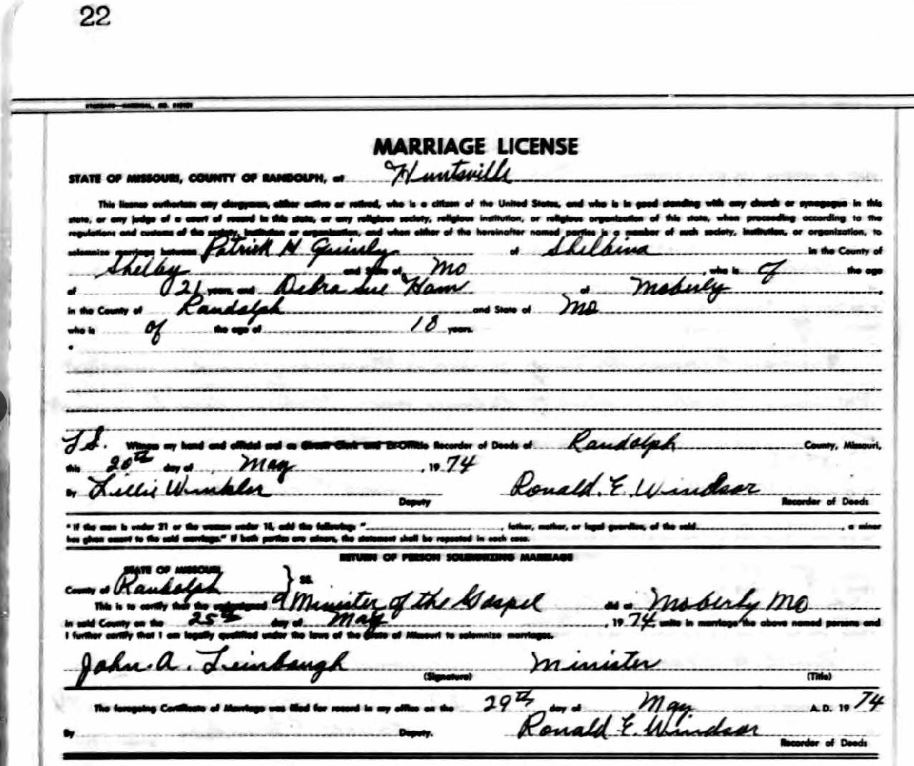 22
MARRIAGE LICENSE
STATE OF MISSOURI, COUNTY OF RANDOLPH, at Huntsville
This license authorizes any clergyman, either active or retired, who is a citizen of the United States, and who is in good standing with any church or synagogue in this
state, or any judge of a court of record in this state, or any religious society, religious institution, or religious organization of this state, when proceeding according to the
regulations and customs of the society, institution or organization, and when either of the hereinafter named parties is a member of such society, institution, or organization, to
solemnize marriage between Patrick H of Shelbina in the County of
Shelby and State of Mo , who is of the age
of 21 years, and Debra Sue Ham of Moberly ,
in the County of Randolph and State of Mo
who is of the age of 18 years.
*
L S. Witness my hand and official seal as Circuit Clerk and Ex-Officio Recorder of Deeds of Randolph County, Missouri,
this 20th day of May , 19 74
By Lillie Winkler Ronald. E. Windsor
Deputy Recorder of Deeds
"If the man is under 21 or the woman under 18, add the following: " , father, mother, or legal guardian, of the said , a minor
has given assent to the said marriage." If both parties are minors, the statement shall be repeated in each case.
RETURN OF PERSON SOLEMNIZING MARRIAGE
STATE OF MISSOURI,
County of Randolph } SS.
This is to certify that the undersigned a Minister of the Gospel did at Moberly Mo
in said County on the 25th day of May , 19 74 unite in marriage the above named persons and
I further certify that I am legally qualified under the laws of the State of Missouri to solemnize marriages.
John. A. Leinbaugh Minister
(Signature) (Title)
The foregoing Certificate of Marriage was filed for record in my office on the 29th day of May A. D. 19 74
By Deputy. Ronald E. Windsor
Recorder of Deeds